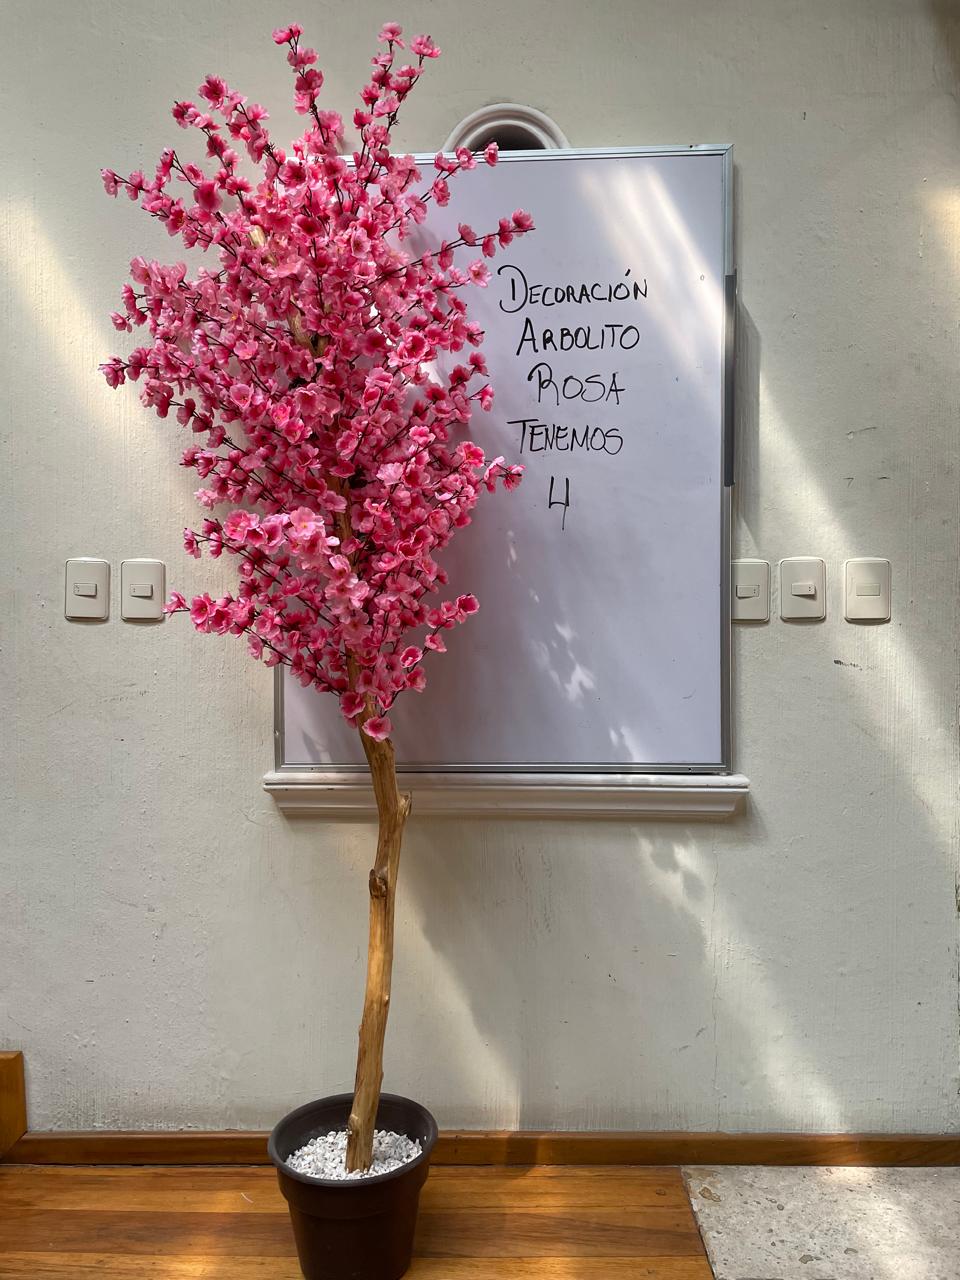 DECORACIÓN
ARBOLITO
ROSA
TENEMOS
4